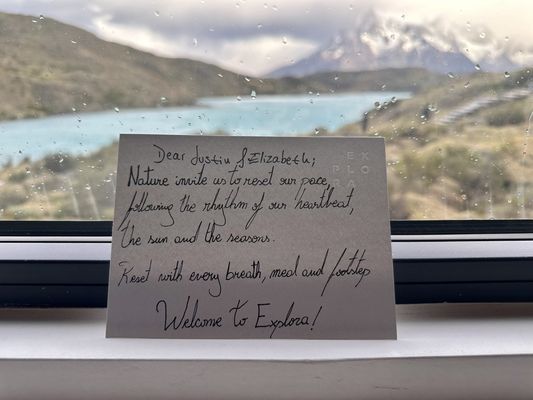 Dear Justin & Elizabeth;
EX
PLO
RA
Nature invite us to reset our pace
following the rhythm of our heartbeat,
the sun and the seasons.
Reset with every breath, meal and footstep
Welcome to Explora!